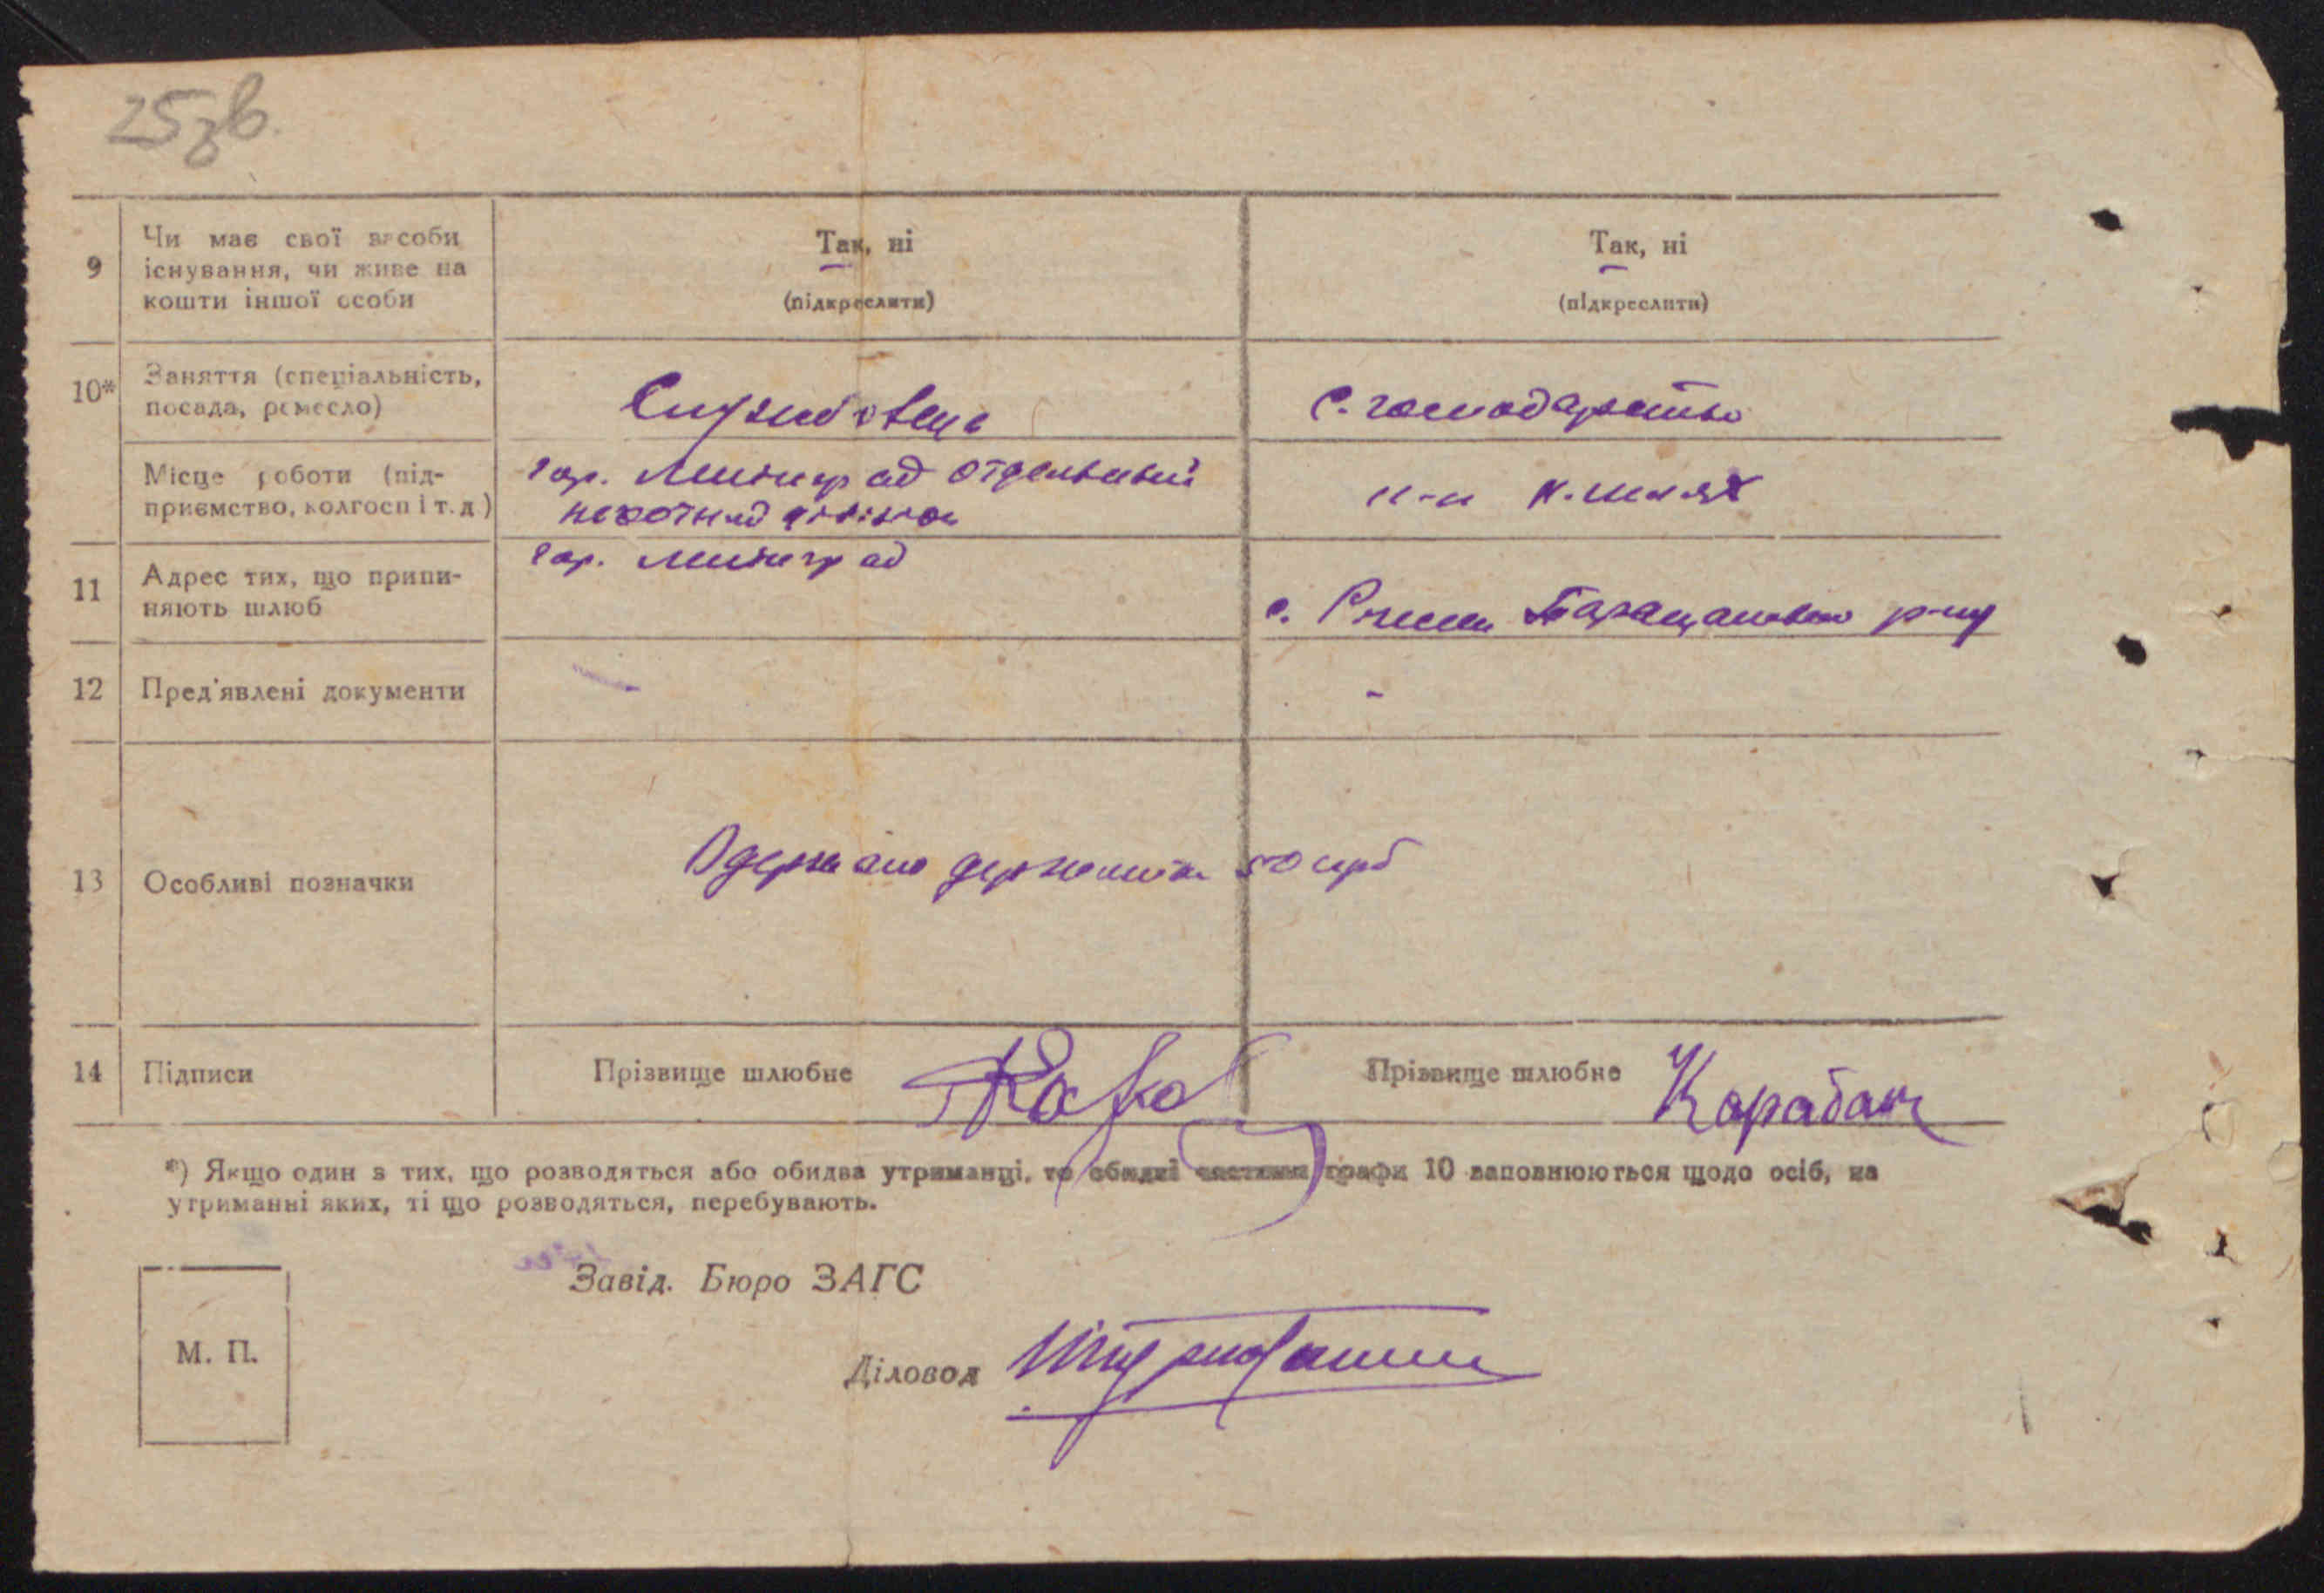 25зв.
9
Чи має свої засоби
існування, чи живе на
кошти іншої особи
Так, ні
(підкреслити)
Так, ні
(підкреслити)
10*
Заняття (спеціальність,
посада, ремесло)
с. господарство
Місце роботи (під-
приємство, колгосп і т. д)
гор.
к. шлях
11
Адрес тих, що припи-
няють шлюб
гор.
с.
р-ну
12
Пред'явлені документи
-
13
Особливі позначки
Одержано держмита 50 крб
14
Підписи
Прізвище шлюбне
Прізвище шлюбне Карабан
*) Якщо один з тих, що розводяться або обидва утриманці, то обидві частини графи 10 заповнюються щодо осіб, на
утриманні яких, ті що розводяться, перебувають.
Завід. Бюро ЗАГС
М. П.
Діловод